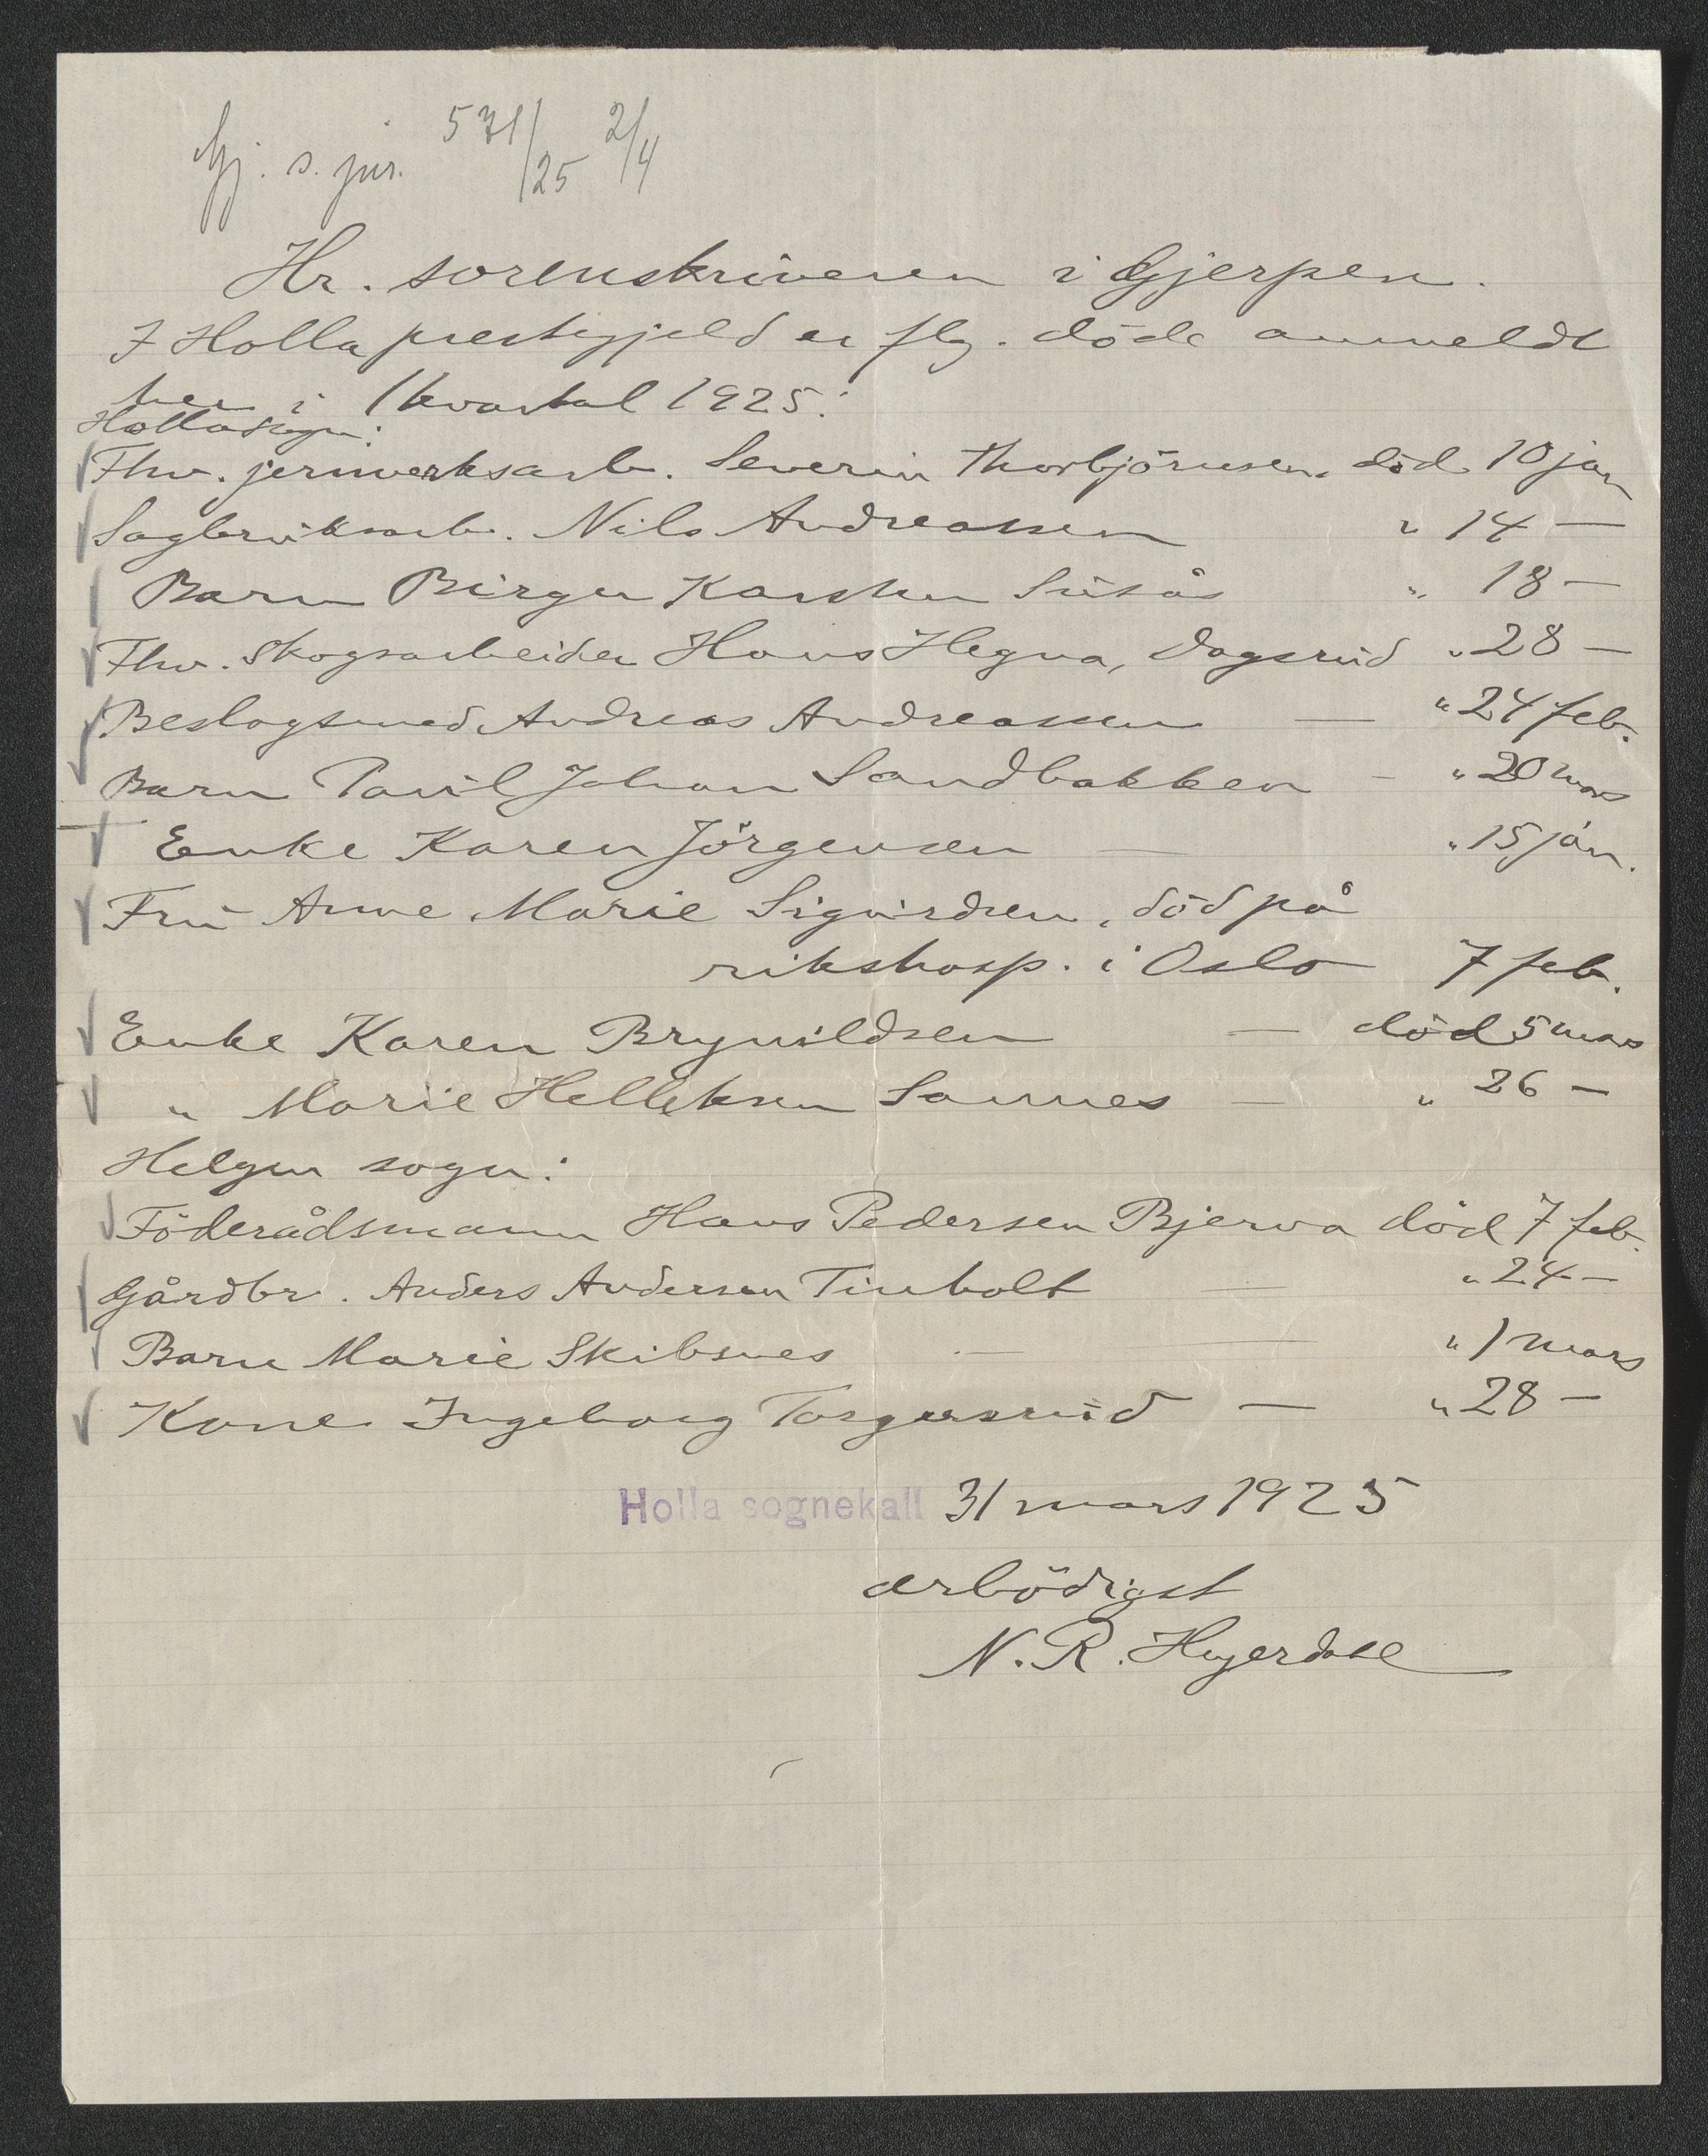 Gj. s. jnr. 571/25 2/4
Hr. sorenskriveren i Gjerpen.
I Holla prestegjeld er flg. döde anmeldt
her i 1 kvartal 1925:
Holla sogn:
Fhv. jernverksarb. Severin Thorbjörnsen död 10 jan
Sagbruksarb. Nils Andreassen " 14 —
Barn Birger Karsten Siisås " 18 —
Fhv. Skogsarbeider Hans Hegna, Dagsrud " 28 —
Beslagsmed Andreas Andreassen — " 24 feb.
Barn Paul Johan Sandbakken — " 20 mars
Enke Karen Jörgensen — " 15 jan.
Fru Anne Marie Sigurdsen, död på
rikshosp. i Oslo 7 feb.
Enke Karen Brynildsen — död 5 mars
" Marie Halleksen Sannes — " 26 —
Helgen sogn:
Föderådsmann Hans Pedersen Bjerva död 7 feb.
Gårdbr. Anders Andersen Tinholt — " 24 —
Barn Marie Skibsnes — — " 1 mars
Kone Ingeborg Torgersrud — " 28 —
Holla sognekall 31 mars 1925
ærbödigst
N. R. Hejerdahl